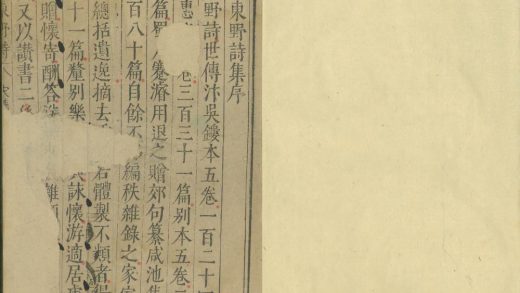 東野詩集序
野詩世傳汴吳鏤本五卷一百二十四
惠 卷三百三十一篇別本五卷三
篇蜀人蹇濬用退之贈郊句纂咸池集
百八十篇自餘不 編秩雜錄之家家
總括遺逸摘去 若體製不類者得
十一篇釐別樂 詠懷游適居處
贈懷寄酬答 雜題
又以讚書二